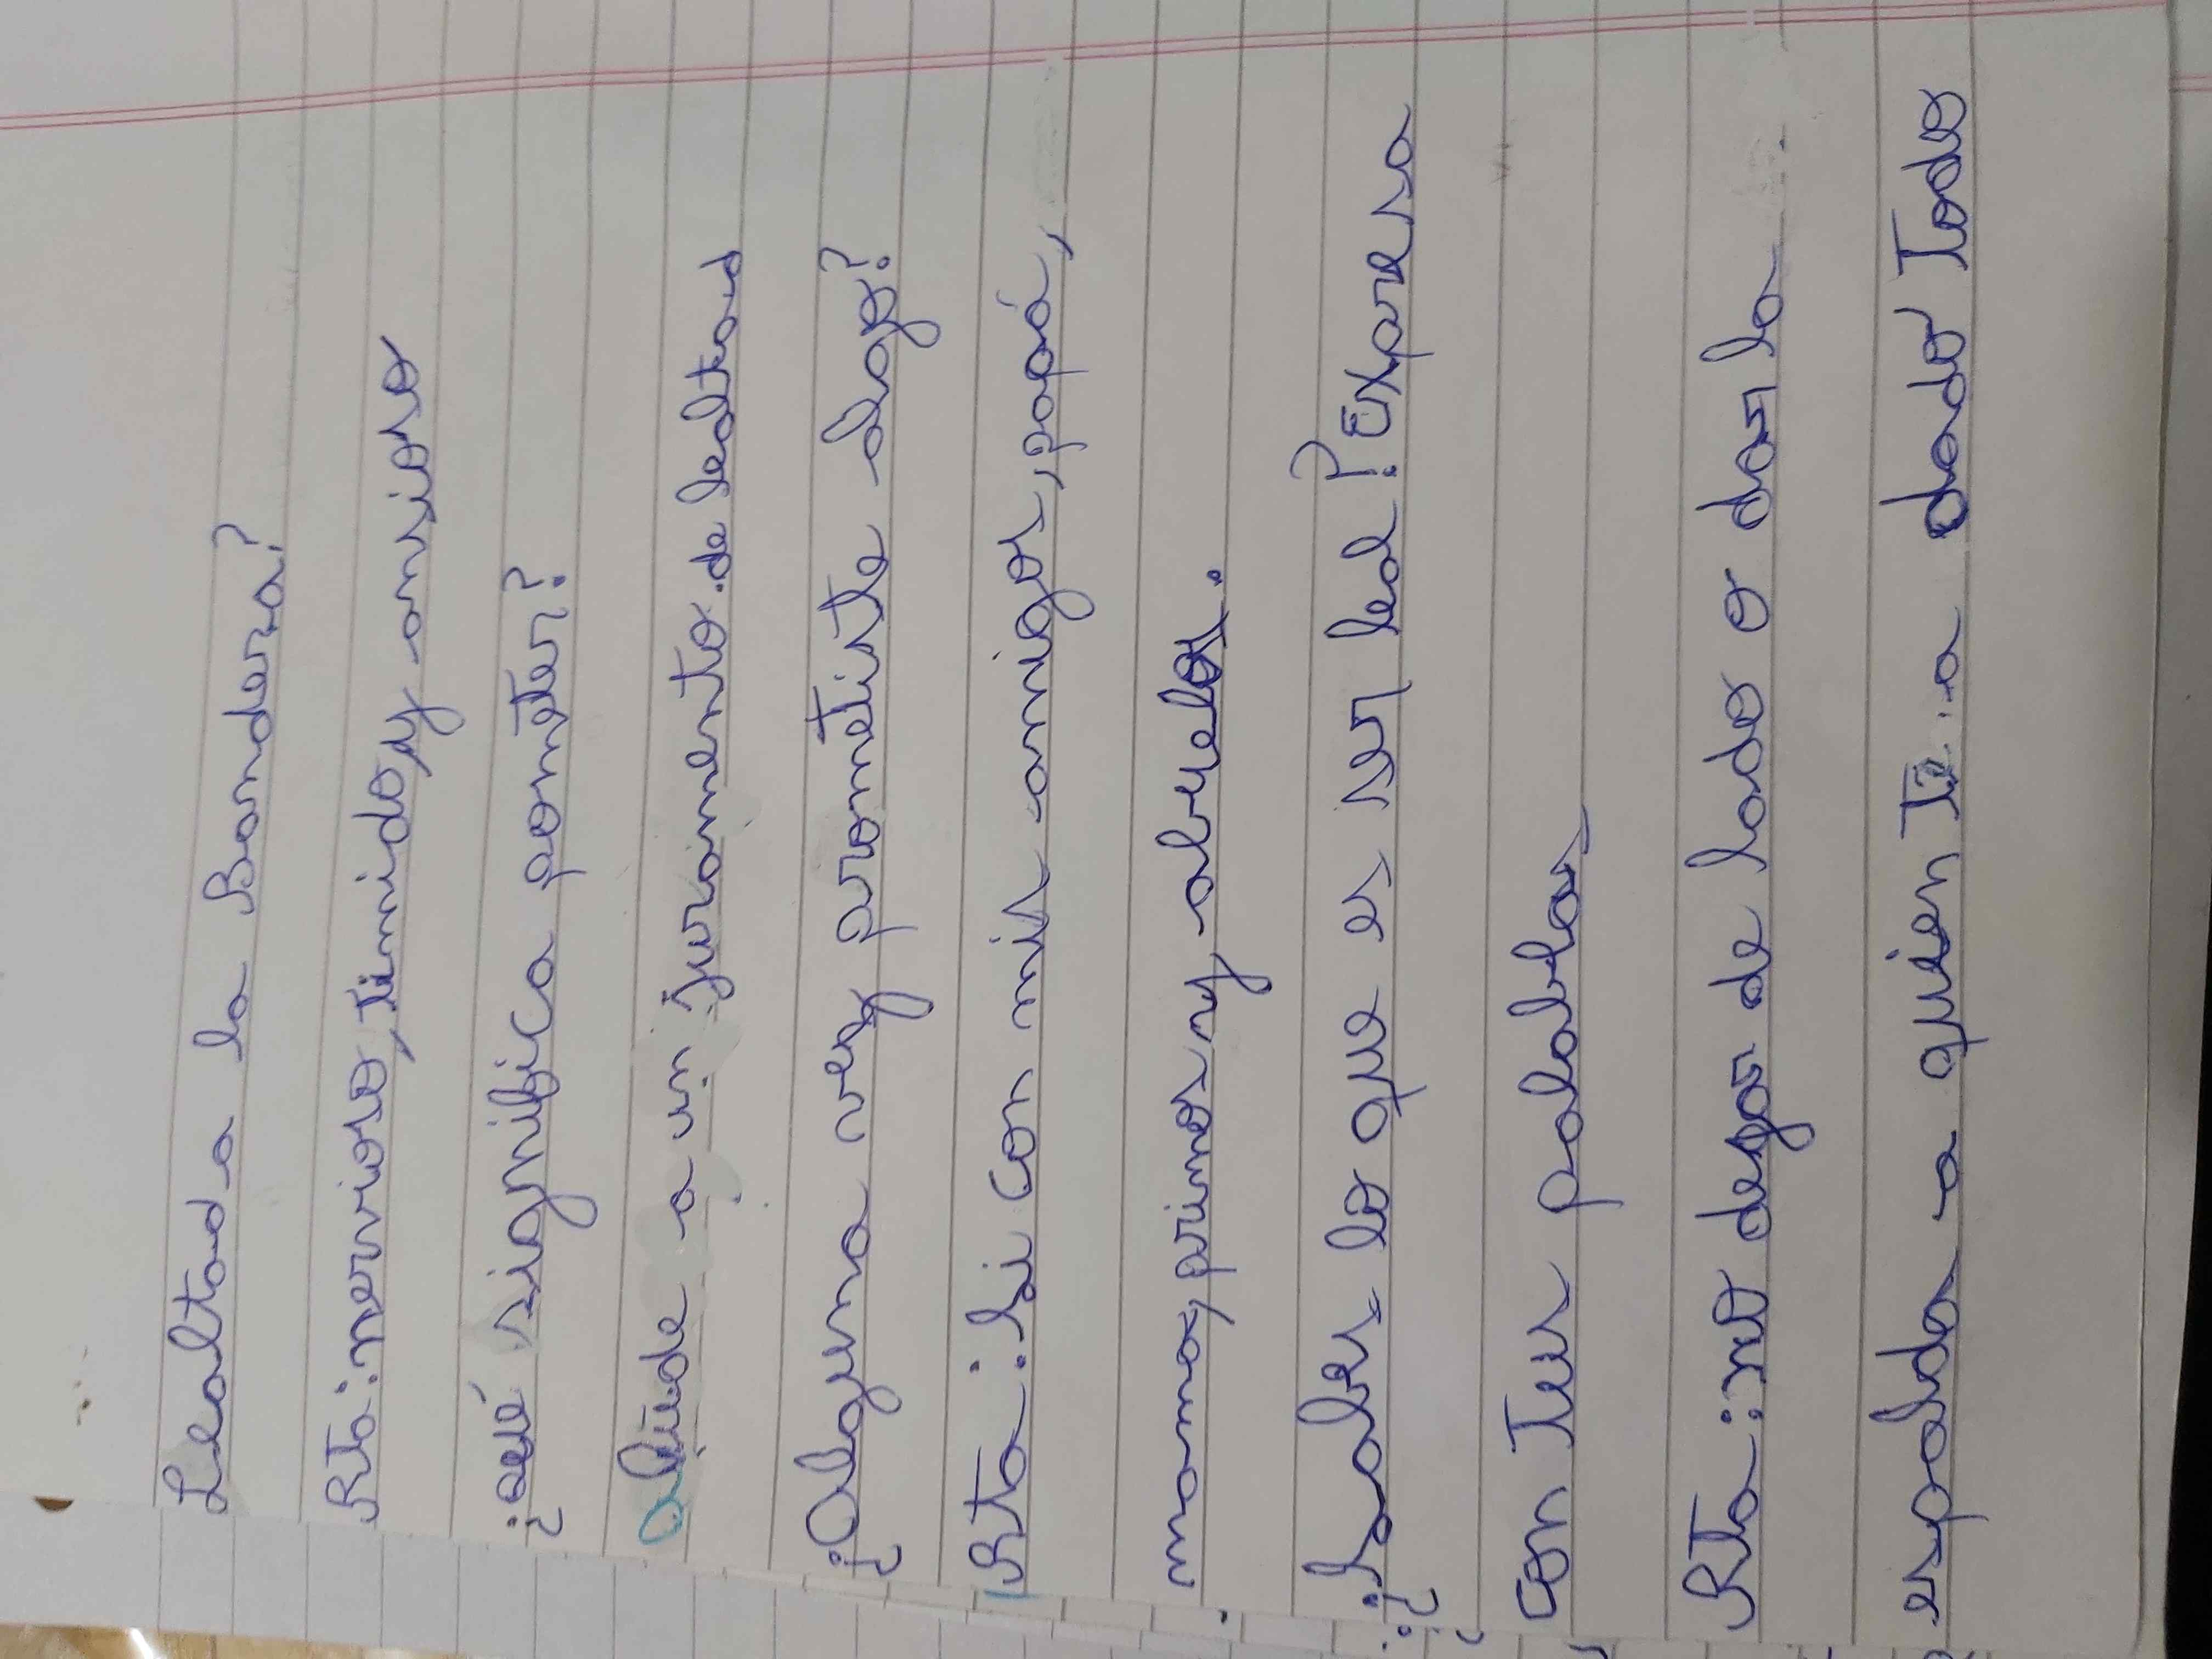 Lealtad a la Bandera?
Rta: nervioso, timido, y ansioso
¿Qué significa pometer?
alude a un juramento de lealtad
¿Alguna vez prometiste algo?
Rta: Si con mis amigos, papá,
mama, primos y abuelos.
¿Sabes lo que es ser leal? Expresa
con Tus palabras
Rta: no dejar de lado o dar la
espalda a quien Te a dado Todo